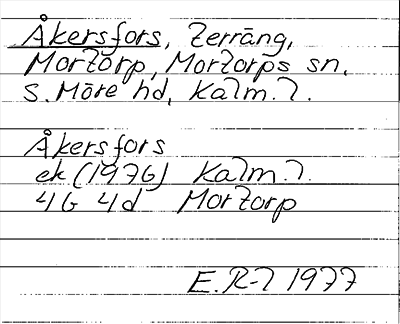 Åkersfors, Terräng,
Mortorp, Mortorps sn,
S. Möre hd, Kalm. l.
Åkersfors
ek (1976) Kalm. l.
4G 4d Mortorp
E. R-l 1977